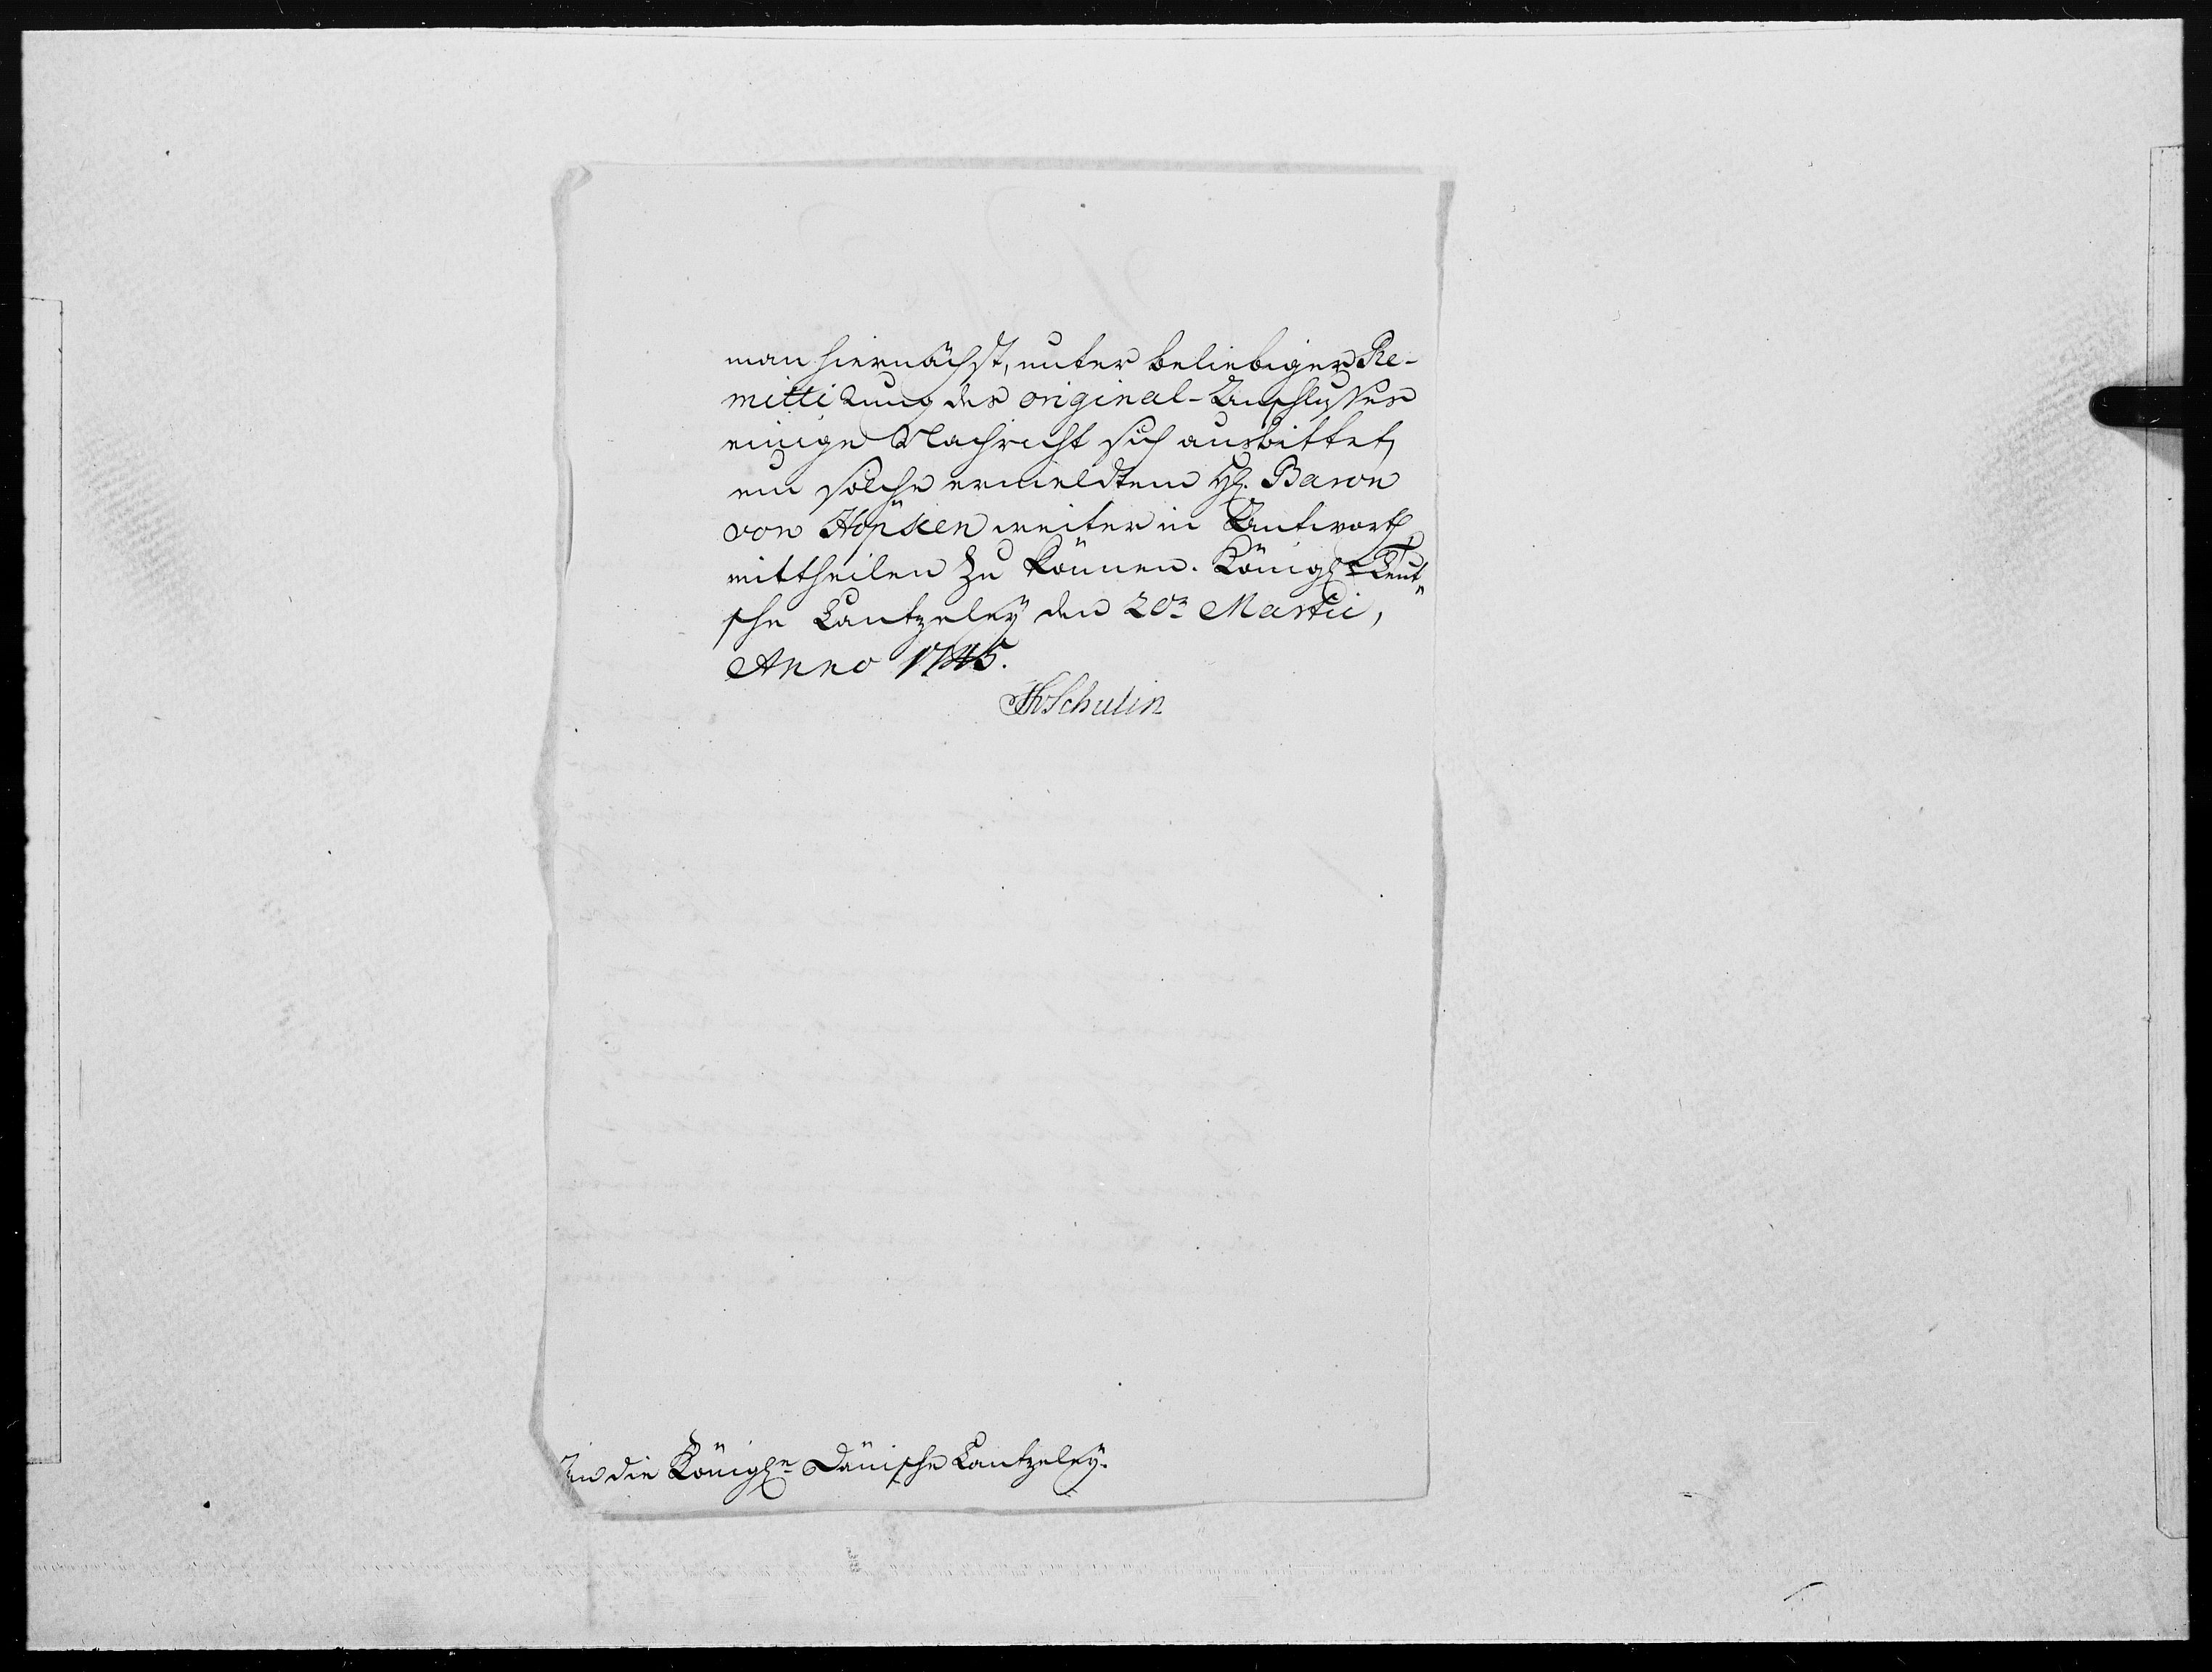 man hiernächst, unter beliebiger Re-
mittirung des original-Anschlußes
einige Nachricht sich ausbittet,
um solche ermeldtem H. Baron
von Höpken weiter in Antwort
mittheilen zu können. Königl. Teut„
sche Cantzeley den 20n Martii,
Anno 1745.
JHvSchulin
An die Königle Dänische Cantzeley.